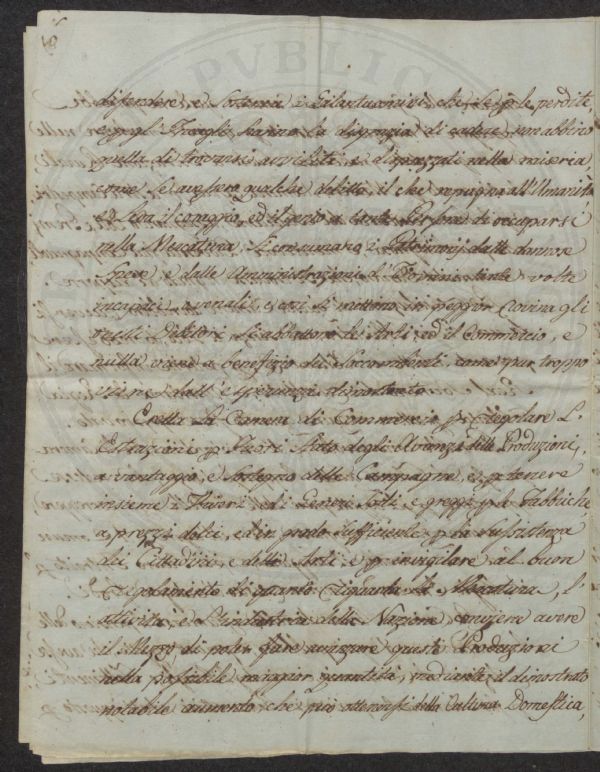 PUBLIC
difendere, e sostenere i Galantuomini, che se p le perdite,
e pegl' Travagli hanno la disgrazia di cadere, non abbino
quella di trovarsi avviliti, e dimazzati nella miseria
come se avessero qualche delitto, il che repugna all'Umanità,
e leva il coraggio, ed il genio a tante Persone di occuparsi
nella Mercatura, si consumano i Patrimonj dalle dannose
Spese, e dalle Amministrazioni d'Uomini tante volte
incapaci, e venali, e così si mettono in peggior rovina gli
stessi Debitori, si abbattono le Arti, ed il Commercio, e
nulla viene a benefizio dei Soccombenti, come pur troppo
viene dall' esperienza dimostrato.
Eretta La Camera di Commercio p regolare L'
Estrazioni p Fuori Stato degli Avanzi delle Produzioni,
a vantaggio, e Sostegno delle Campagne, e p tenere
insieme i Viveri, ed i Generi Sodi, e greggi p le Fabbriche
a prezzi dolci, ed in grado sufficiente p la Sussistenza
dei Cittadini, e delle Arti e p invigilare al buon
regolamento di quanto riguarda la Mercatura, l'
attività, e l'industria della Nazione, conviene avere
il Mezzo di poter fare avanzare queste Produzioni
nella possibile maggior quantità, mediante il dimostrato
notabile aumento che può ottenersi dalla Cultura Domestica,